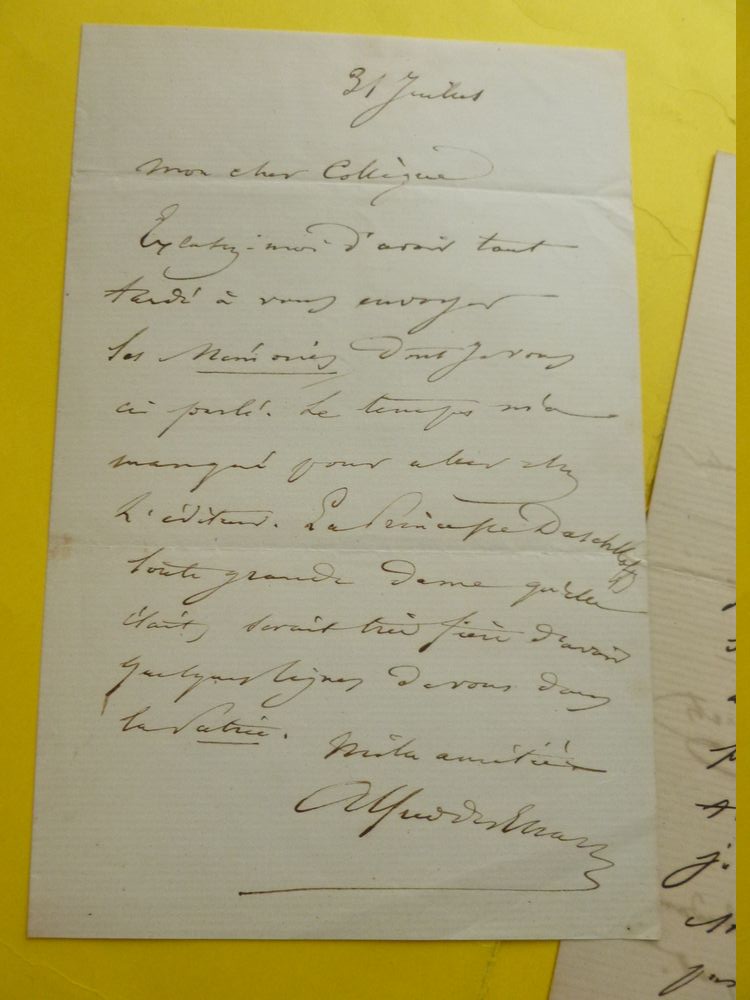 31 Juillet
Mon cher Collègue
Excusez-moi d'avoir tant
tardé à vous envoyer
les Mémoires dont je vous
ai parlé. Le temps m'a
manqué pour aller chez
l'éditeur. La Princesse Daschkoff
toute grande dame qu'elle
était, serait très fière d'avoir
quelques lignes de vous dans
la Patrie.
Mille amitiés
Alfred des Essarts